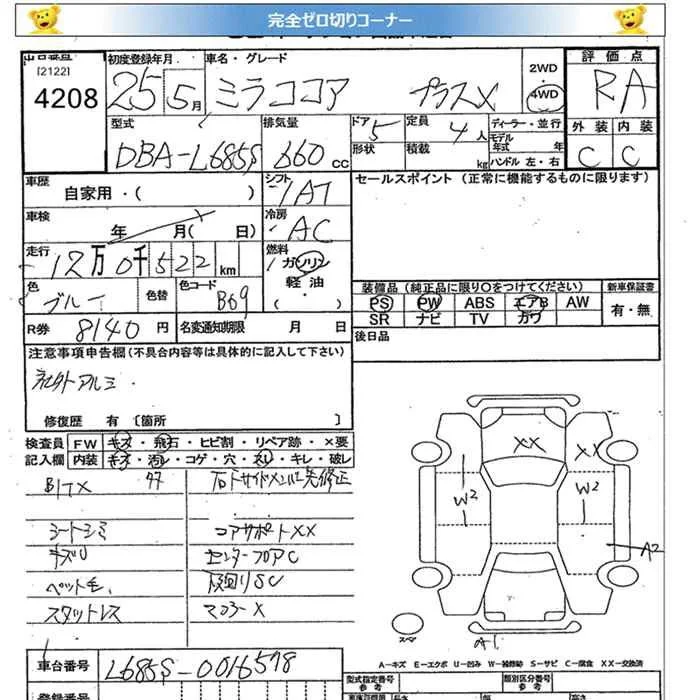 完全ゼロ切りコーナー
[2122]
4208
初度登録年月
25 5月
車名・グレード
ミラココア プラスX
2WD
4WD
評価点
RA
型式
DBA-L685S
排気量
660 cc
ドア 5
定員 4人
ディーラー・並行
モデル年式 年
形状
積載 kg
ハンドル 左・右
外装 内装
C C
車歴
自家用・( )
シフト
IAT
セールスポイント (正常に機能するものに限ります)
車検
年 月( 日)
冷房
AC
走行
12万0千522km
燃料
ガソリン
軽油
( )
色
ブルー
色替
色コード
B69
装備品 (純品に限り○をつけてください)
新車保証書
PS PW ABS エアB AW
有・無
SR ナビ TV カワ
R券 8140円
名変通知期限 月 日
後日品
注意事項申告欄 (不具合内容等は具体的に記入して下さい)
社外アルミ
修復歴 有 〔箇所 〕
検査員 FW キズ・飛石・ヒビ割・リペア跡・×要
記入欄 内装 キズ・汚レ・コゲ・穴・スレ・キレ・破レ
シートシミ コアサポートXX
キズU センターフロアC
ペット毛 下回りSC
スタットレス マフラーX
XX
XX
W2
W2
A2
スペア
A1
A-キズ E-エクボ U-凹み W-補修跡 S-サビ C-腐食 XX-交換済
車台番号 L685S-0016578
型式指定番号
参考
類別区分番号
参考